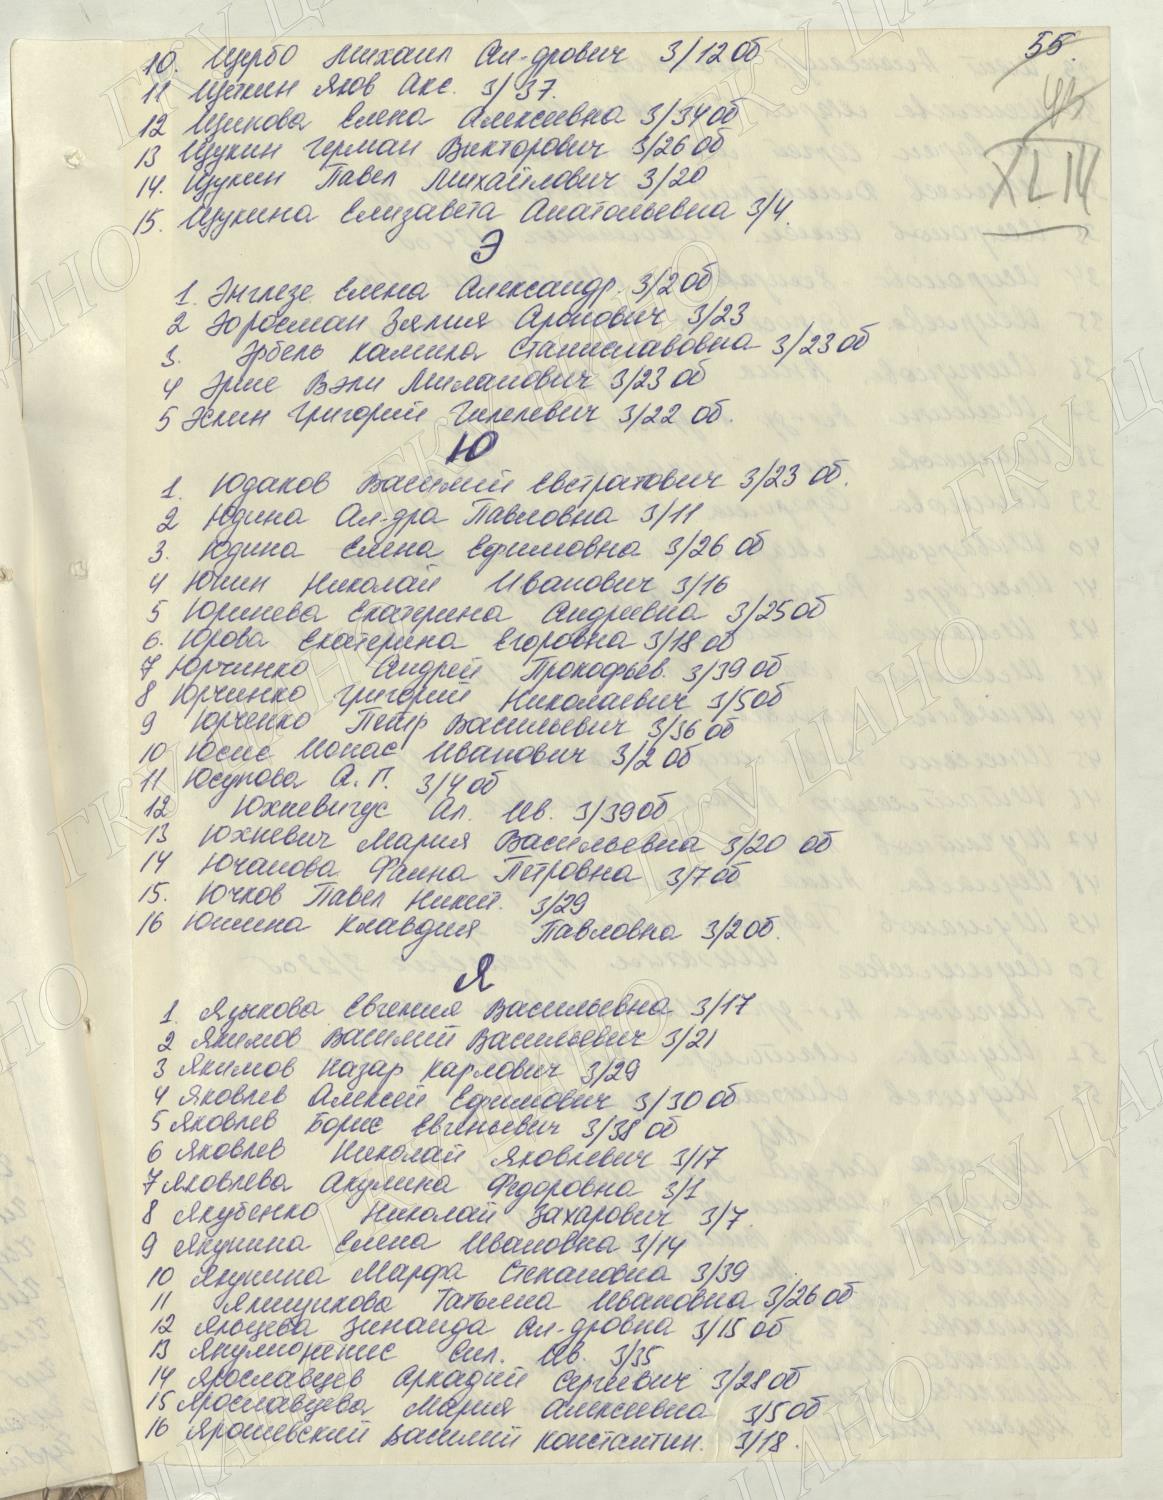 55
45
XLIV
10. Щербо Михаил Ал-дрович 3/12 об
11 Щёкин Яков Акс. 3/37.
12 Щипкова Елена Алексеевна 3/34 об
13 Щукин Герман Викторович 3/26 об
14. Щукин Павел Михайлович 3/20
15. Щукина Елизавета Анатольевна 3/4.
Э
1. Энглезе Елена Александр. 3/2 об
2 Аронович 3/23
3. Эрбель Камила Станиславовна 3/23 об
4 Эрне Вэли Миланович 3/23 об
5 Эскин Григорий Гилелевич 3/22 об.
Ю
1. Юдаков Василий Евстратович 3/23 об.
2 Юдина Ал-дра Павловна 3/11
3. Юдина Елена Ефимовна 3/26 об
4 Юнин Николай Иванович 3/16
5 Юринева Екатерина Андреевна 3/25 об
6. Юрова Екатерина Егоровна 3/18 об
7 Юрчинко Андрей Прокофьев. 3/39 об
8 Юрчинко Григорий Николаевич 3/5 об
9 Юрченко Петр Васильевич 3/36 об
10 Юсис Ионас Иванович 3/2 об
11 Юсупова А. П. 3/4 об
12 Юхневигус Ал. Ив. 3/39 об
13 Юхневич Мария Васильевна 3/20 об
14 Ючанова Фаина Петровна 3/7 об
15. Ючков Павел Никит. 3/29
16 Юшина Клавдия Павловна 3/2 об.
Я
1. Языкова Евгения Васильевна 3/17
2 Якимов Василий Васильевич 3/21
3 Якимов Назар Карлович 3/29
4 Яковлев Алексей Ефимович 3/30 об
5 Яковлев Борис Евгеньевич 3/38 об
6 Яковлев Николай Яковлевич 3/17
7 Яковлева Акулина Федоровна 3/1
8 Якубенко Николай Захарович 3/7.
9 Якунина Елена Ивановна 3/14
10 Якунина Марфа Степановна 3/39
11 Якищикова Татьяна Ивановна 3/26 об
12 Яльцева Зинаида Ал-дровна 3/15 об
13 Сил. Ив. 3/35
14 Ярославцев Аркадий Сергеевич 3/28 об
15 Ярославцева Мария Алексеевна 3/5 об
16 Ярошевский Василий Константин. 3/18.
ГКУ ЦАНО